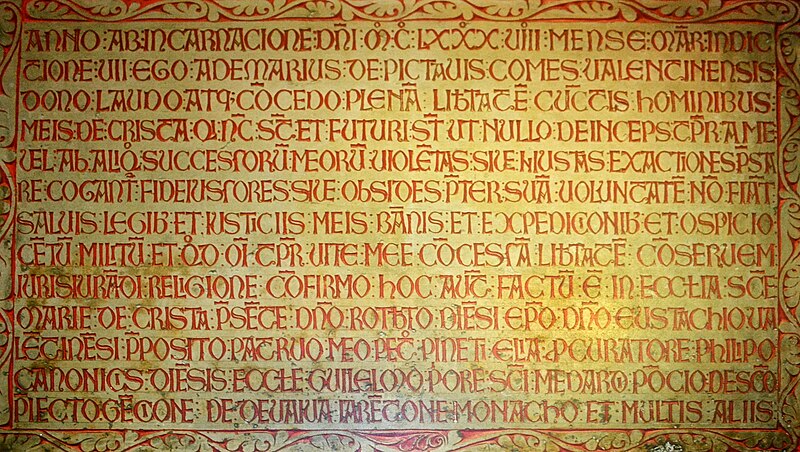 ANNO : AB : INCARNACIONE : DN̄I M̊ C̊ LXXX̊ VIIII MENSE : MĀR : INDIC
TIONE : VII : EGO : ADEMARIUS : DE : PICTAVIS : COMES : VALENTINENSIS
DONO : LAUDO : ATQ : CŌCEDO : PLENĀ : LIB̄TATĒ CŪCTIS : HOMINIBUS
MEIS : DE : CRISTA : Q̄I N̄C ST̄ : ET FUTURI : ST̄ UT NULLO : DEINCEPS : TP̄R : A : ME
VEL : AB : ALIQ̊ : SUCCESSORŪ : MEORŪ : VIOLĒTAS : SIVE : IIUSTAS : EXACTIONES : PSTA
RE : COGANT̊ : FIDEIUSSORES : SIVE : OBSIDES : P̄TER : SUĀ : VOLUNTATĒ : NŌ : FIAT
SALVIS : LEGIB : ET : IUSTICIIS : MEIS : BĀNIS : ET : EXPEDICIONIB : ET : OSPICIO
CĒTŪ MILITŪ : ET : Q̊D OĪ : TP̄R : VITE : MEE : CŌCESSĀ : LIB̄TATĒ : CŌSERVEM
IURISIURĀDI : RELIGIONE : CŌFIRMO : HOC : AUT̄ : FACTŪ : Ē : IN : ECC̄LIA : SC̄E
MARIE : DE : CRISTA : P̄SĒTE : DN̄O : ROTB̄TO : DIESI : EP̄O : DN̄O : EUSTACHIO : VA
LĒTINĒSI : P̄POSITO : PATRUO : MEO : PET̊ : PINETI : ELIA : PCURATORE : PHILIPO
CANONICIS : DIĒSIS : ECCL̄E : GUILELMO : P̄ORE : SC̄I : MEDARDI : PŌCIO : DESCŌ
P̄LECTO : GĒCIONE : DE : DEVAIUA : TARĒCONE : MONACHO : ET : MULTIS : ALIIS